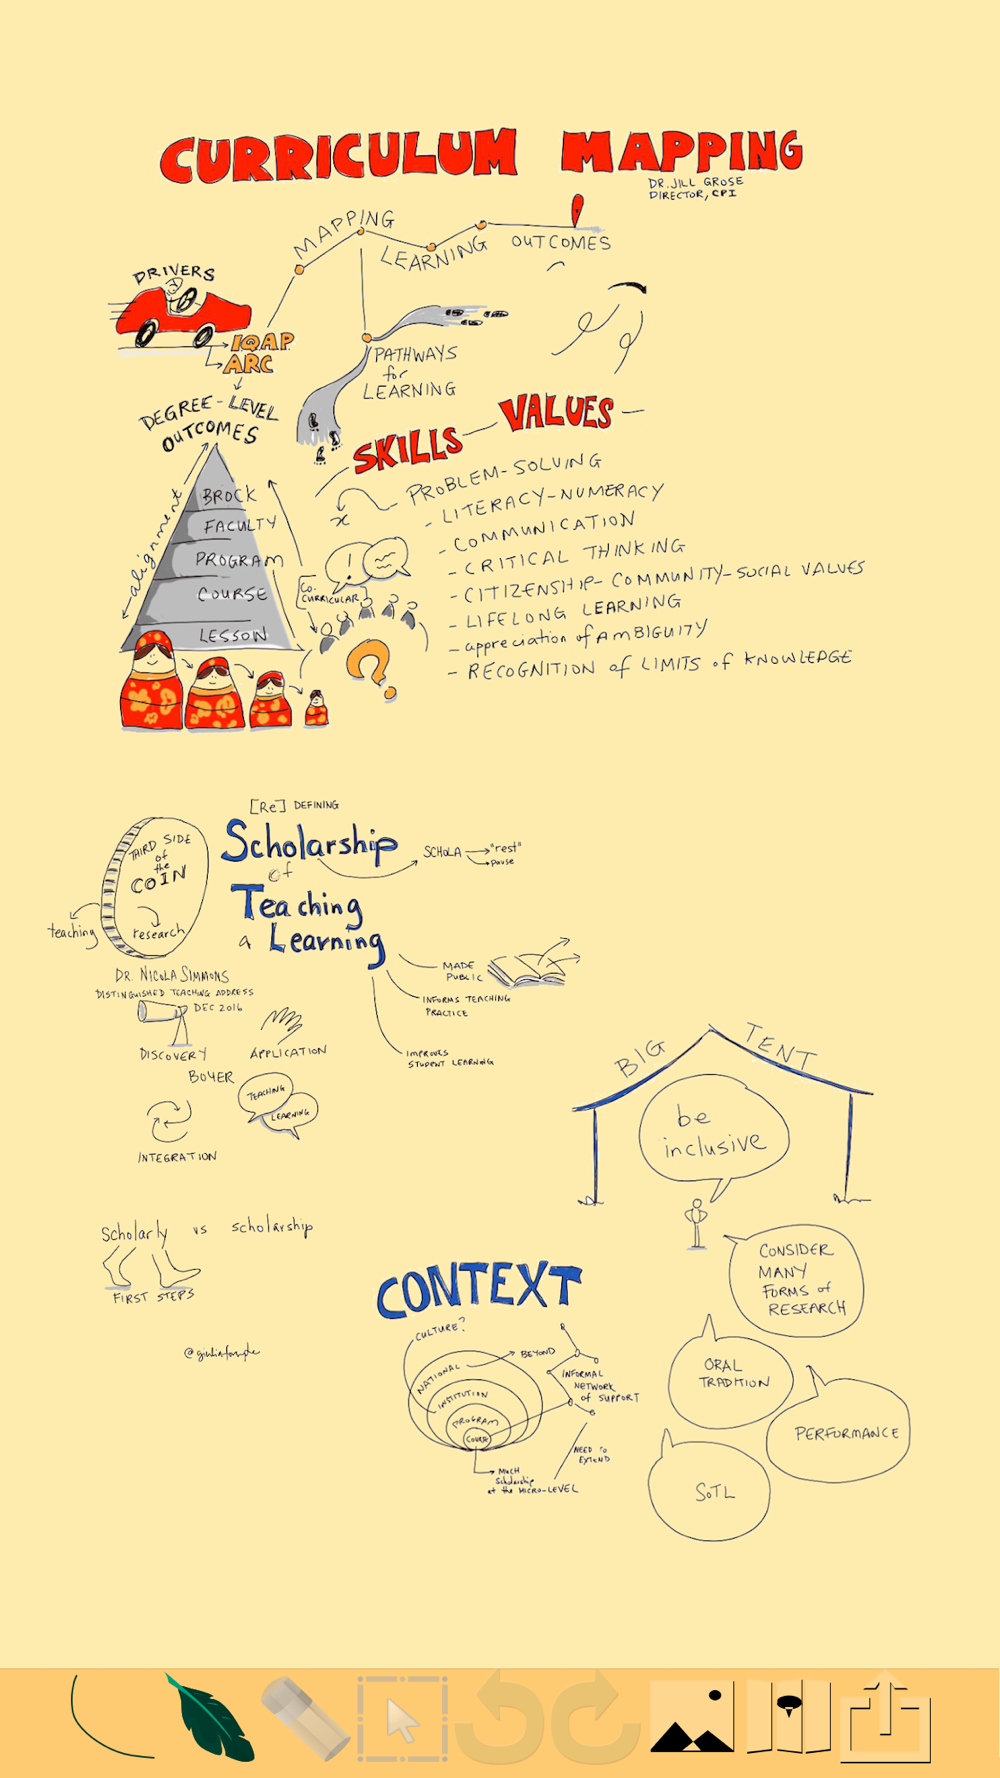 CURRICULUM MAPPING
DR. JILL GROSE
DIRECTOR, CPI
MAPPING
LEARNING
OUTCOMES
DRIVERS
IQAP
ARC
PATHWAYS
for
LEARNING
DEGREE-LEVEL
OUTCOMES
SKILLS
VALUES
alignment
BROCK
FACULTY
PROGRAM
COURSE
LESSON
CO-
CURRICULAR
x
!
?
PROBLEM-SOLVING
- LITERACY-NUMERACY
- COMMUNICATION
- CRITICAL THINKING
- CITIZENSHIP-COMMUNITY-SOCIAL VALUES
- LIFELONG LEARNING
- appreciation of AMBIGUITY
- RECOGNITION of LIMITS of KNOWLEDGE
[Re] DEFINING
Scholarship
of
Teaching
a Learning
SCHOLA
"rest"
pause
THIRD SIDE
of
the
COIN
teaching
research
DR. NICOLA SIMMONS
DISTINGUISHED TEACHING ADDRESS
DEC 2016
MADE
PUBLIC
INFORMS TEACHING
PRACTICE
IMPROVES
STUDENT LEARNING
DISCOVERY
APPLICATION
BOYER
TEACHING
LEARNING
INTEGRATION
BIG TENT
be
inclusive
Scholarly vs scholarship
FIRST STEPS
CONSIDER
MANY
FORMS of
RESEARCH
ORAL
TRADITION
PERFORMANCE
SOTL
CONTEXT
CULTURE?
NATIONAL
BEYOND
INSTITUTION
PROGRAM
COURSE
INFORMAL
NETWORK
of SUPPORT
NEED to
EXTEND
MUCH
Scholarship
at the MICRO-LEVEL